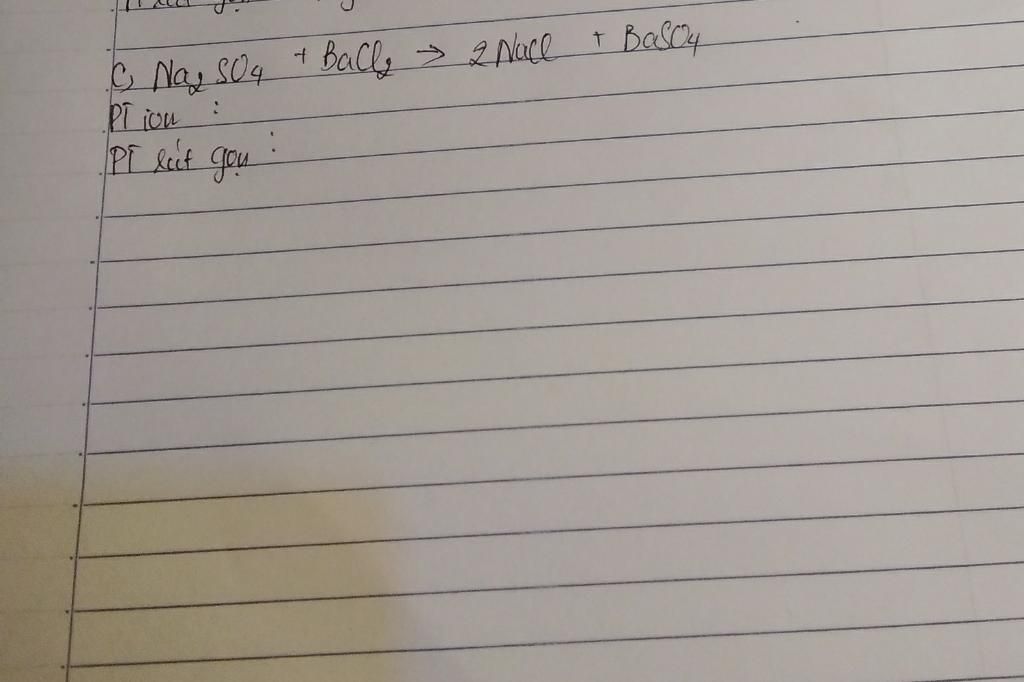 PT rút gọn
c, Na₂SO₄ + BaCl₂ → 2NaCl + BaSO₄
PT ion :
PT rút gọn :